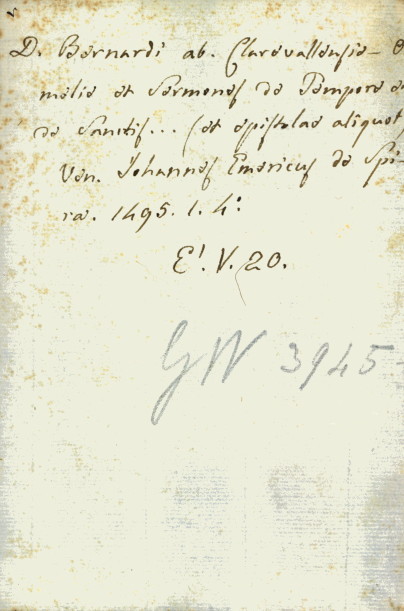 D. Bernardi ab. Clarevallensis O
melie et Sermones de Tempore et
de Sanctis... (et epistolae aliquot)
Ven. Johannes Emericus de Spi-
ra. 1495. 1. 4:
E'. V. 20.
GW 3945